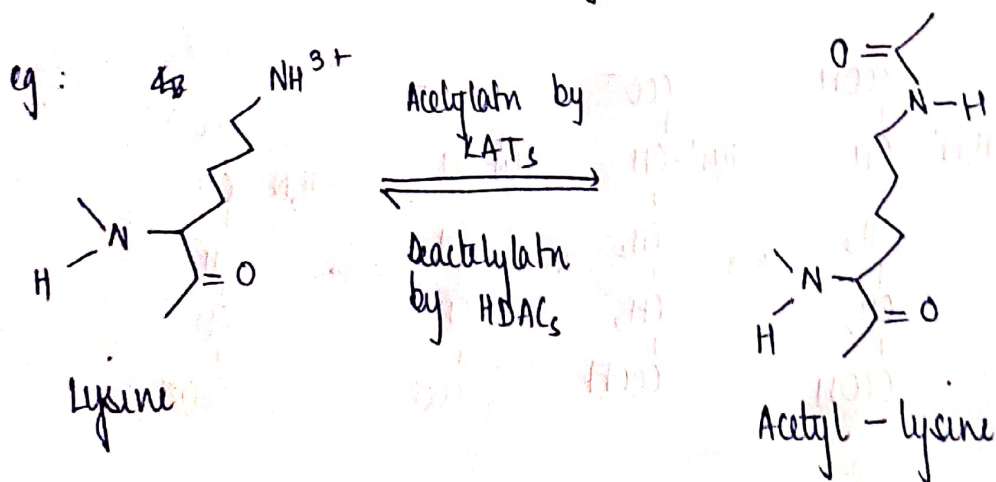 eg :
NH³⁺
N
H
O
Lysine
Acetylatn by
KATs
Deactelylatn
by HDACs
O
N-H
N
H
O
Acetyl - lysine